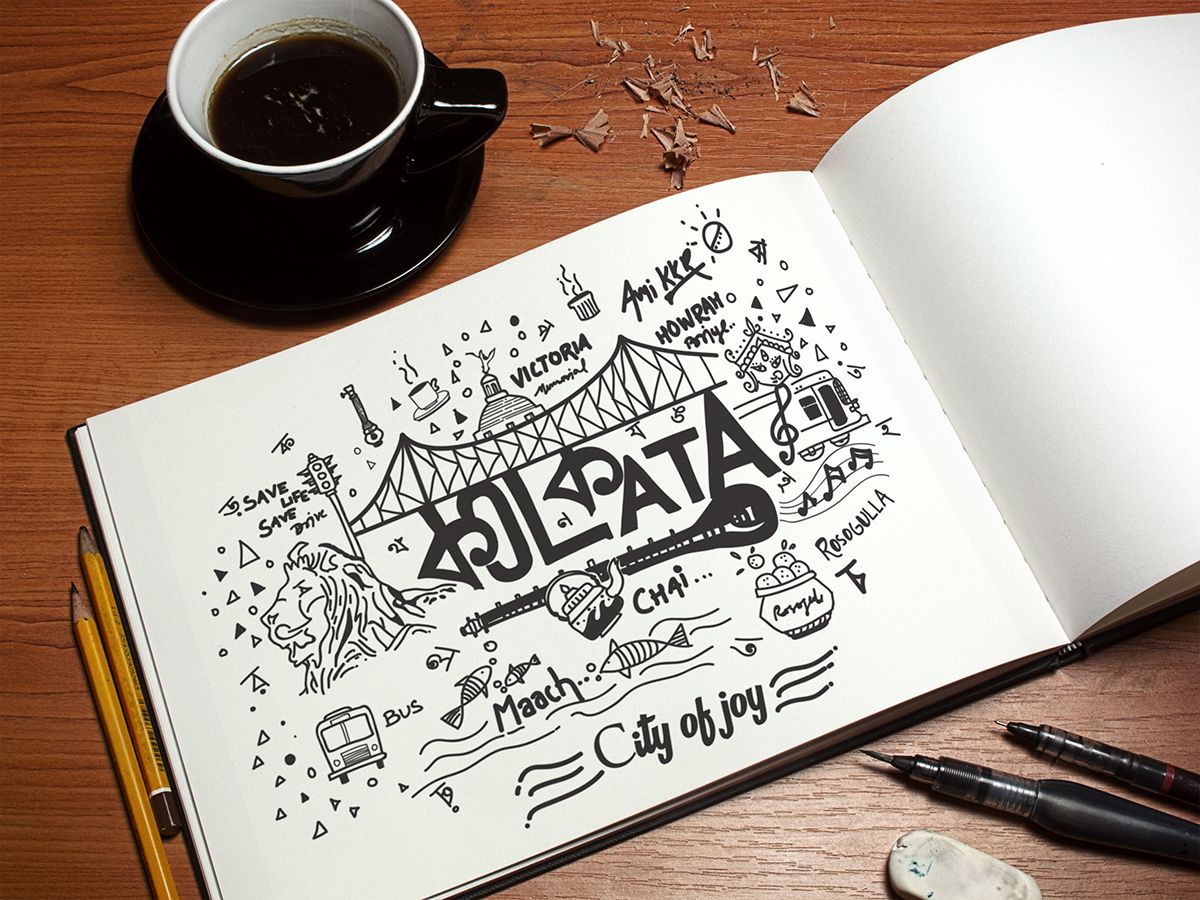 Ami KKR
HOWRAH
Bridge..
VICTORIA
Memorial
SAVE
LIFE
SAVE
Drive
কOLকATA
ROSOGULLA
CHAI...
Maach...
BUS
City of joy